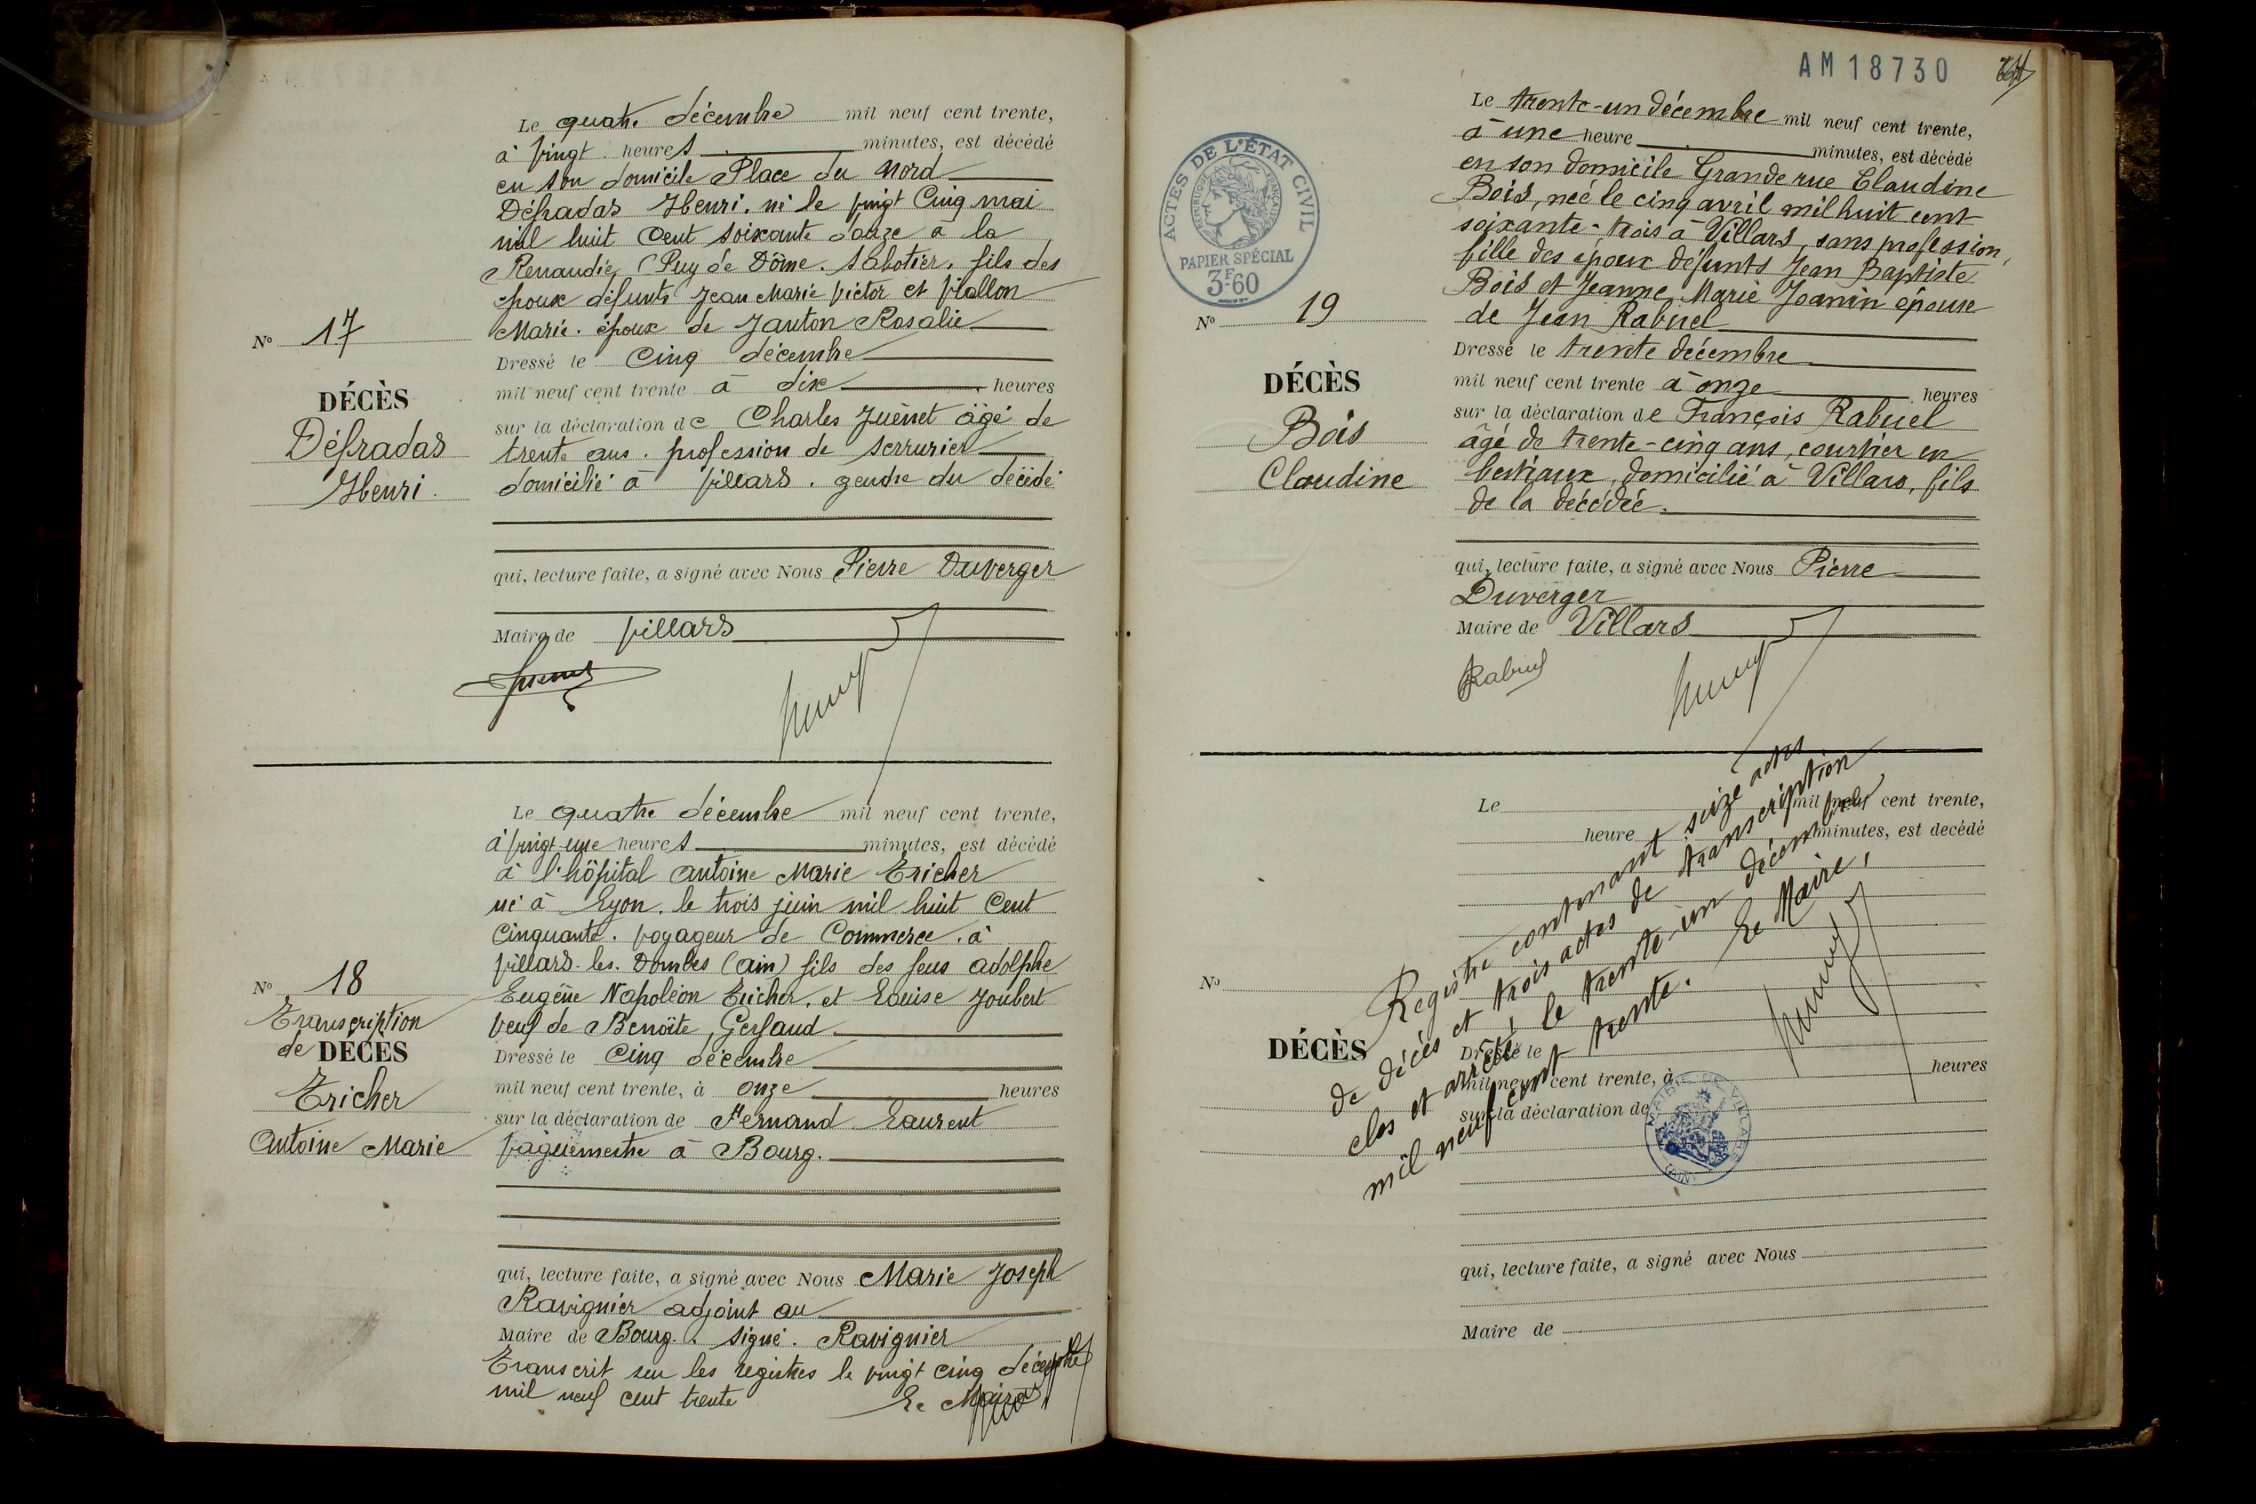 Le quatre décembre mil neuf cent trente,
à vingt heures minutes, est décédé
en son domicile Place du Nord
Défradas Henri. né le vingt Cinq mai
mil huit Cent soixante douze à la
Renaudie, (Puy de Dôme. sabotier. fils des
époux défunts Jean Marie Victor et Viallon
Marie. époux de Janton Rosalie
Dressé le Cinq décembre
mil neuf cent trente à dix heures
sur la déclaration de Charles Juènet âgé de
trente ans. profession de serrurier
domicilié à Villars. gendre du décédé
qui, lecture faite, a signé avec Nous Pierre Duverger
Maire de Villars
No 17
DÉCÈS
Défradas
Henri.
Le quatre décembre mil neuf cent trente,
à vingt une heures minutes, est décédé
à l'hôpital Antoine Marie Tricher
né à Lyon. le trois juin mil huit Cent
Cinquante. voyageur de Commerce. à
Villars-les-Dombes (Ain) fils des feus Adolphe
Eugène Napoléon Tricher, et Louise Joubert
veuf de Benoite Gerfaud
Dressé le Cinq décembre
mil neuf cent trente, à onze heures
sur la déclaration de Fernand Laurent
vaguemestre à Bourg.
qui, lecture faite, a signé avec Nous Marie Joseph
Ravignier adjoint au
Maire de Bourg. signé. Ravignier
Transcrit sur les registres le vingt cinq décembre
mil neuf cent trente Le Maire
No 18
Transcription
de DÉCÈS
Tricher
Antoine Marie
AM18730
ACTES DE L'ÉTAT CIVIL
RÉPUBLIQUE FRANÇAISE
PAPIER SPÉCIAL
3F.60
Le trente-un décembre mil neuf cent trente,
à une heure minutes, est décédé
en son domicile Grande rue Claudine
Bois, née le cinq avril mil huit cent
soixante-trois à Villars, sans profession,
fille des époux défunts Jean Baptiste
Bois et Jeanne Marie Joanin épouse
de Jean Rabuel
Dressé le trente décembre
mil neuf cent trente à onze heures
sur la déclaration de François Rabuel
âgé de trente-cinq ans, courtier en
bestiaux, domicilié à Villars, fils
de la décédée.
qui, lecture faite, a signé avec Nous Pierre
Duverger
Maire de Villars
Rabuel
No 19
DÉCÈS
Bois
Claudine
Le mil neuf cent trente,
heure minutes, est décédé
No
DÉCÈS
Dressé le
mil neuf cent trente, à heures
sur la déclaration de
qui, lecture faite, a signé avec Nous
Maire de
Registre contenant seize actes
de décès et trois actes de transcription
clos et arrêté le trente-un décembre
mil neuf cent trente. Le Maire,
MAIRIE DE VILLARS
(AIN)